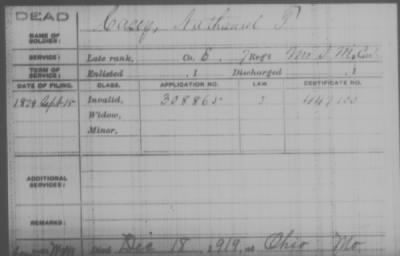 DEAD
NAME OF SOLDIER: Casey, Nathaniel P.
SERVICE: Late rank, Co. E, 7 Reg't Mo. S. M. Cav.
TERM OF SERVICE: Enlisted , 1 Discharged , 1
DATE OF FILING. CLASS. APPLICATION NO. LAW. CERTIFICATE NO.
1879 Sept. 15 Invalid, 308865
Widow,
Minor,
ADDITIONAL SERVICES:
REMARKS:
Died Dec 18, 1919, at Ohio Mo